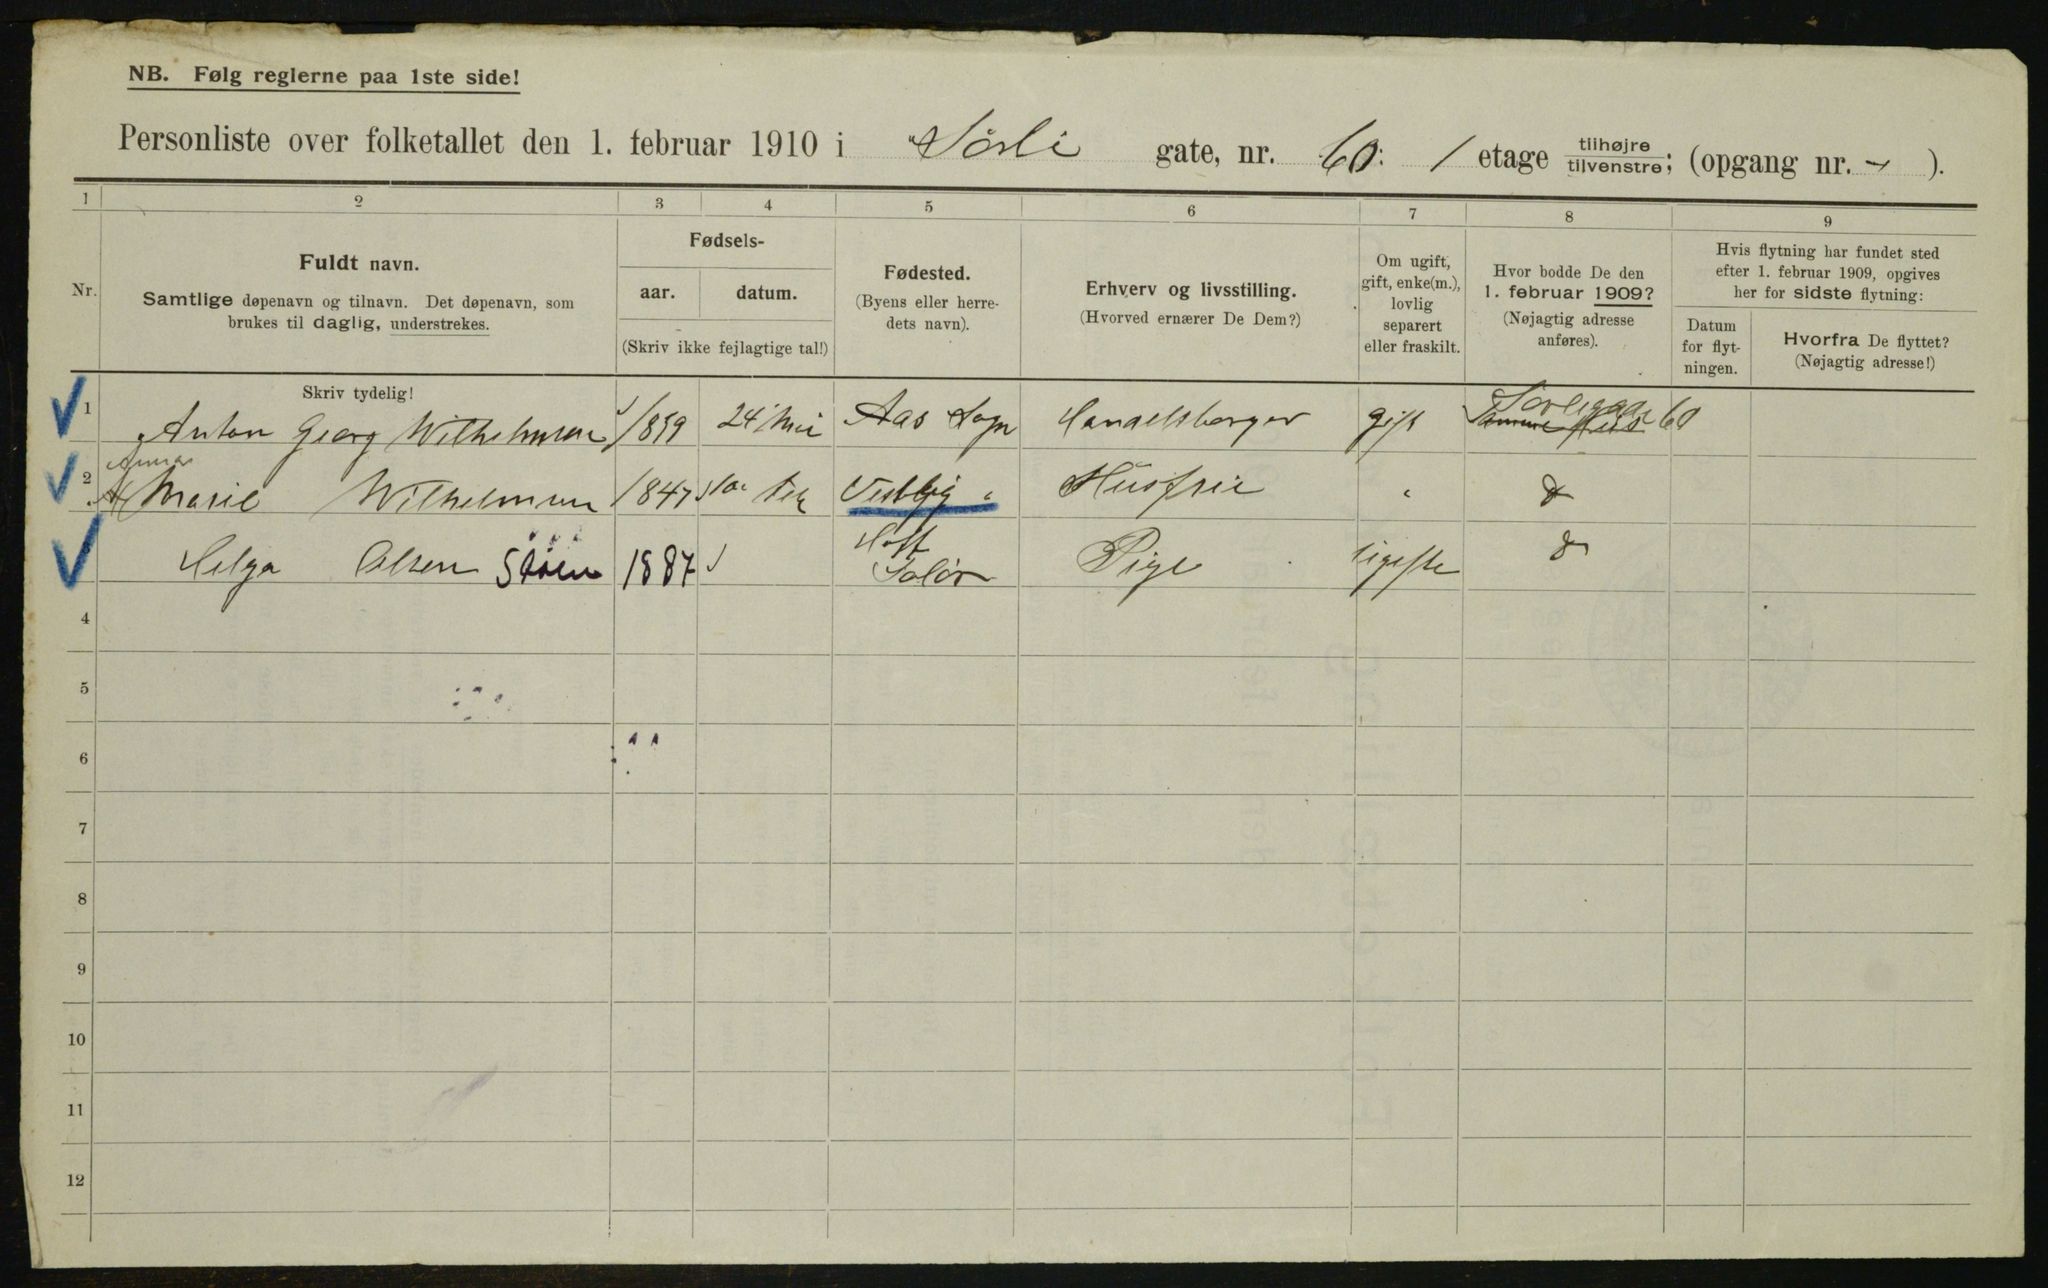 NB. Følg reglerne paa 1ste side!
Personliste over folketallet den 1. februar 1910 i Sørli gate, nr. 60: 1 etage tilhøjre/tilvenstre; (opgang nr. - ).
1 2 3 4 5 6 7 8 9
Nr.
Fuldt navn.
Samtlige døpenavn og tilnavn. Det døpenavn, som
brukes til daglig, understrekes.
Skriv tydelig!
Fødsels-
aar. datum.
(Skriv ikke fejlagtige tal!)
Fødested.
(Byens eller herre-
dets navn).
Erhverv og livsstilling.
(Hvorved ernærer De Dem?)
Om ugift,
gift, enke(m.),
lovlig
separert
eller fraskilt.
Hvor bodde De den
1. februar 1909?
(Nøjagtig adresse
anføres).
Hvis flytning har fundet sted
efter 1. februar 1909, opgives
her for sidste flytning:
Datum
for flyt-
ningen.
Hvorfra De flyttet?
(Nøjagtig adresse!)
Sørligade 60
1 Anton Georg Wilhelmsen 1859 24 Aas Sogn Handelsborger gift Samme Hus
Anna
2 Marie Wilhelmsen 1847 10 Vestby Husfrue "
Hoff
3 Helga Olsen Støen 1887 Solør Pige ugifte
4
5
6
7
8
9
10
11
12